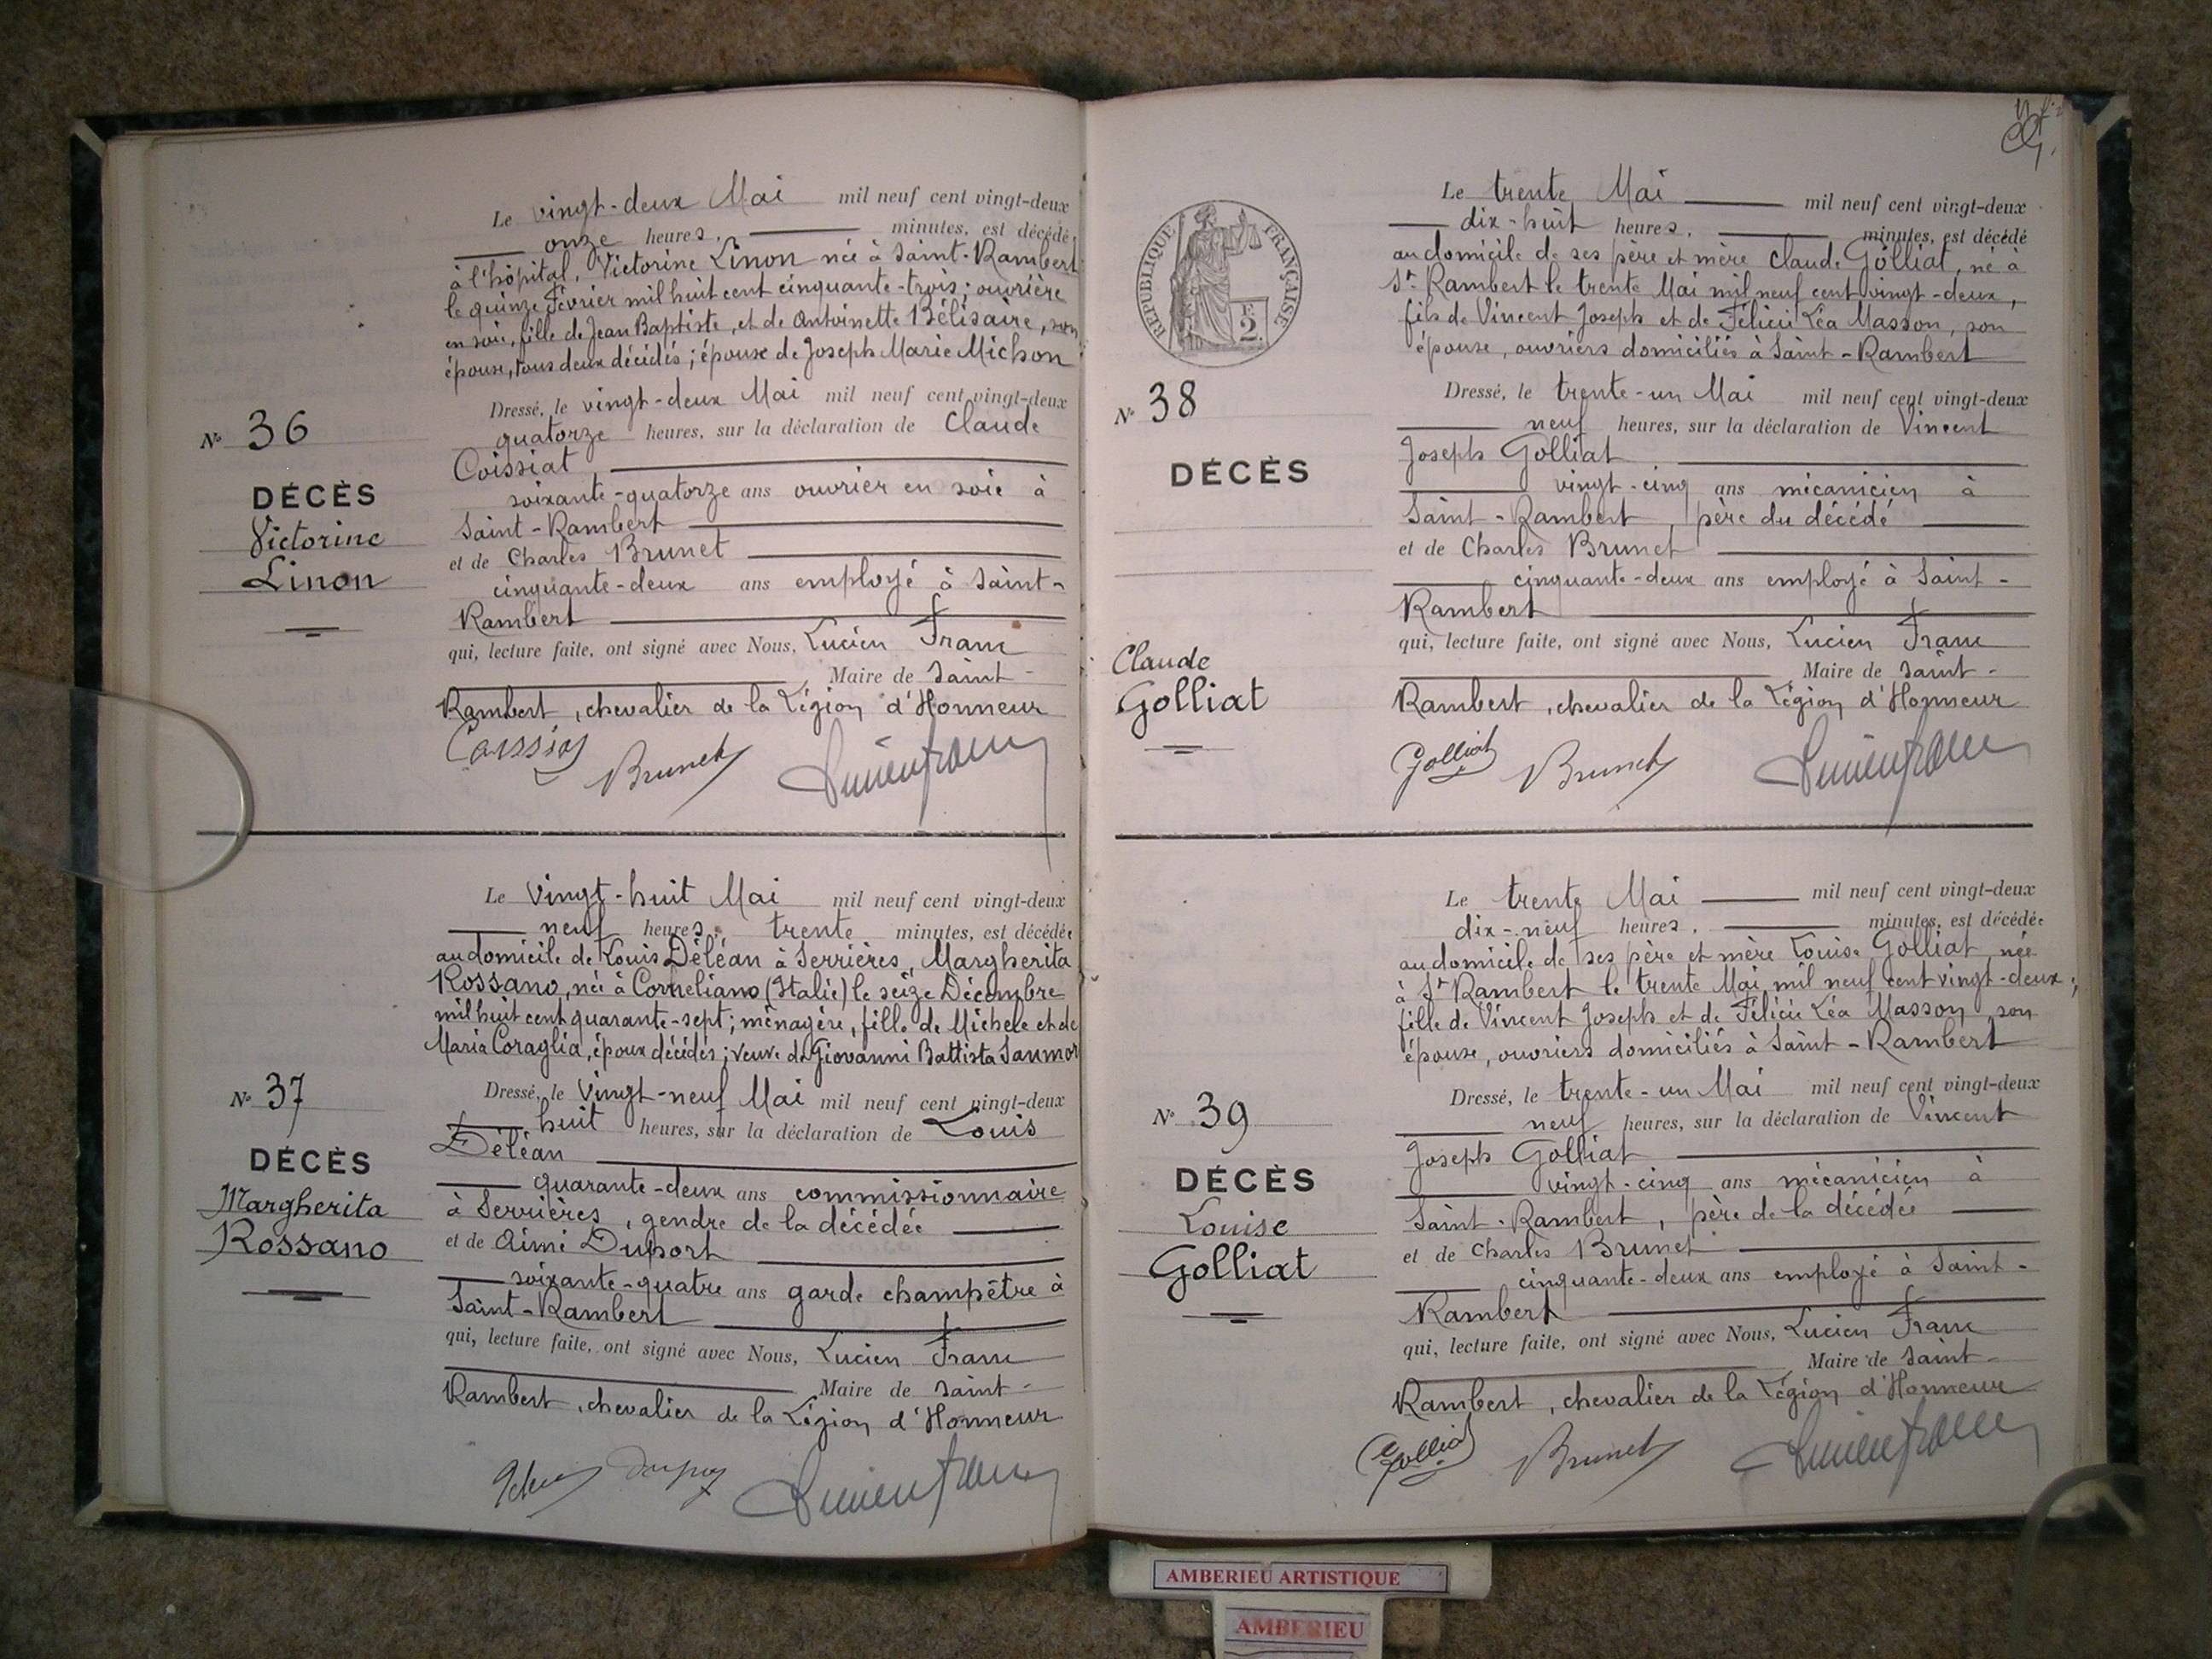 Le vingt-deux Mai mil neuf cent vingt-deux
onze heures, minutes, est décédé
à l'hôpital, Victorine Linon née à Saint-Rambert
le quinze Février mil huit cent cinquante-trois; ouvrière
en soie, fille de Jean Baptiste, et de Antoinette Bélisaire, son
épouse, tous deux décédés; épouse de Joseph Marie Michon
Dressé, le vingt-deux Mai mil neuf cent vingt-deux
quatorze heures, sur la déclaration de Claude
Coissiat,
soixante-quatorze ans ouvrier en soie à
Saint-Rambert
et de Charles Brunet
cinquante-deux ans employé à Saint-
Rambert
qui, lecture faite, ont signé avec Nous, Lucien Franc
Maire de Saint-
Rambert, chevalier de la Légion d'Honneur
Brunet
N° 36
DÉCÈS
Victorine
Linon
Le Vingt-huit Mai mil neuf cent vingt-deux
neuf heures, trente minutes, est décédée
au domicile de Louis Déléan à Serrières, Margherita
Rossano, née à Corneliano (Italie) le seize Décembre
mil huit cent quarante-sept; ménagère, fille de Michele et de
Maria Coraglia, époux décédés; veuve de Giovanni Battista Saumor
Dressé, le Vingt-neuf Mai mil neuf cent vingt-deux
huit heures, sur la déclaration de Louis
Déléan
quarante-deux ans commissionnaire
à Serrières, gendre de la décédée
et de Aimé Duport
soixante-quatre ans garde champêtre à
Saint-Rambert
qui, lecture faite, ont signé avec Nous, Lucien Franc
Maire de Saint-
Rambert, chevalier de la Légion d'Honneur
N° 37
DÉCÈS
Margherita
Rossano
RÉPUBLIQUE FRANÇAISE
2
Le trente Mai mil neuf cent vingt-deux
dix-huit heures, minutes, est décédé
au domicile de ses père et mère Claude Golliat, né à
St Rambert le trente Mai mil neuf cent vingt-deux,
fils de Vincent Joseph et de Félicie Léa Masson, son
épouse, ouvriers domiciliés à Saint-Rambert
Dressé, le trente-un Mai mil neuf cent vingt-deux
neuf heures, sur la déclaration de Vincent
Joseph Golliat
vingt-cinq ans mécanicien à
Saint-Rambert, père du décédé
et de Charles Brunet
cinquante-deux ans employé à Saint-
Rambert
qui, lecture faite, ont signé avec Nous, Lucien Franc
Maire de Saint-
Rambert, chevalier de la Légion d'Honneur
Golliat Brunet
N° 38
DÉCÈS
Claude
Golliat
Le trente Mai mil neuf cent vingt-deux
dix-neuf heures, minutes, est décédée
au domicile de ses père et mère Louise Golliat, née
à St Rambert le trente Mai mil neuf cent vingt-deux;
fille de Vincent Joseph et de Félicie Léa Masson, son
épouse, ouvriers domiciliés à Saint-Rambert
Dressé, le trente-un Mai mil neuf cent vingt-deux
neuf heures, sur la déclaration de Vincent
Joseph Golliat
vingt-cinq ans mécanicien à
Saint-Rambert, père de la décédée
et de Charles Brunet
cinquante-deux ans employé à Saint-
Rambert
qui, lecture faite, ont signé avec Nous, Lucien Franc
Maire de Saint-
Rambert, chevalier de la Légion d'Honneur
Golliat Brunet
N° 39
DÉCÈS
Louise
Golliat
AMBERIEU ARTISTIQUE
AMBERIEU